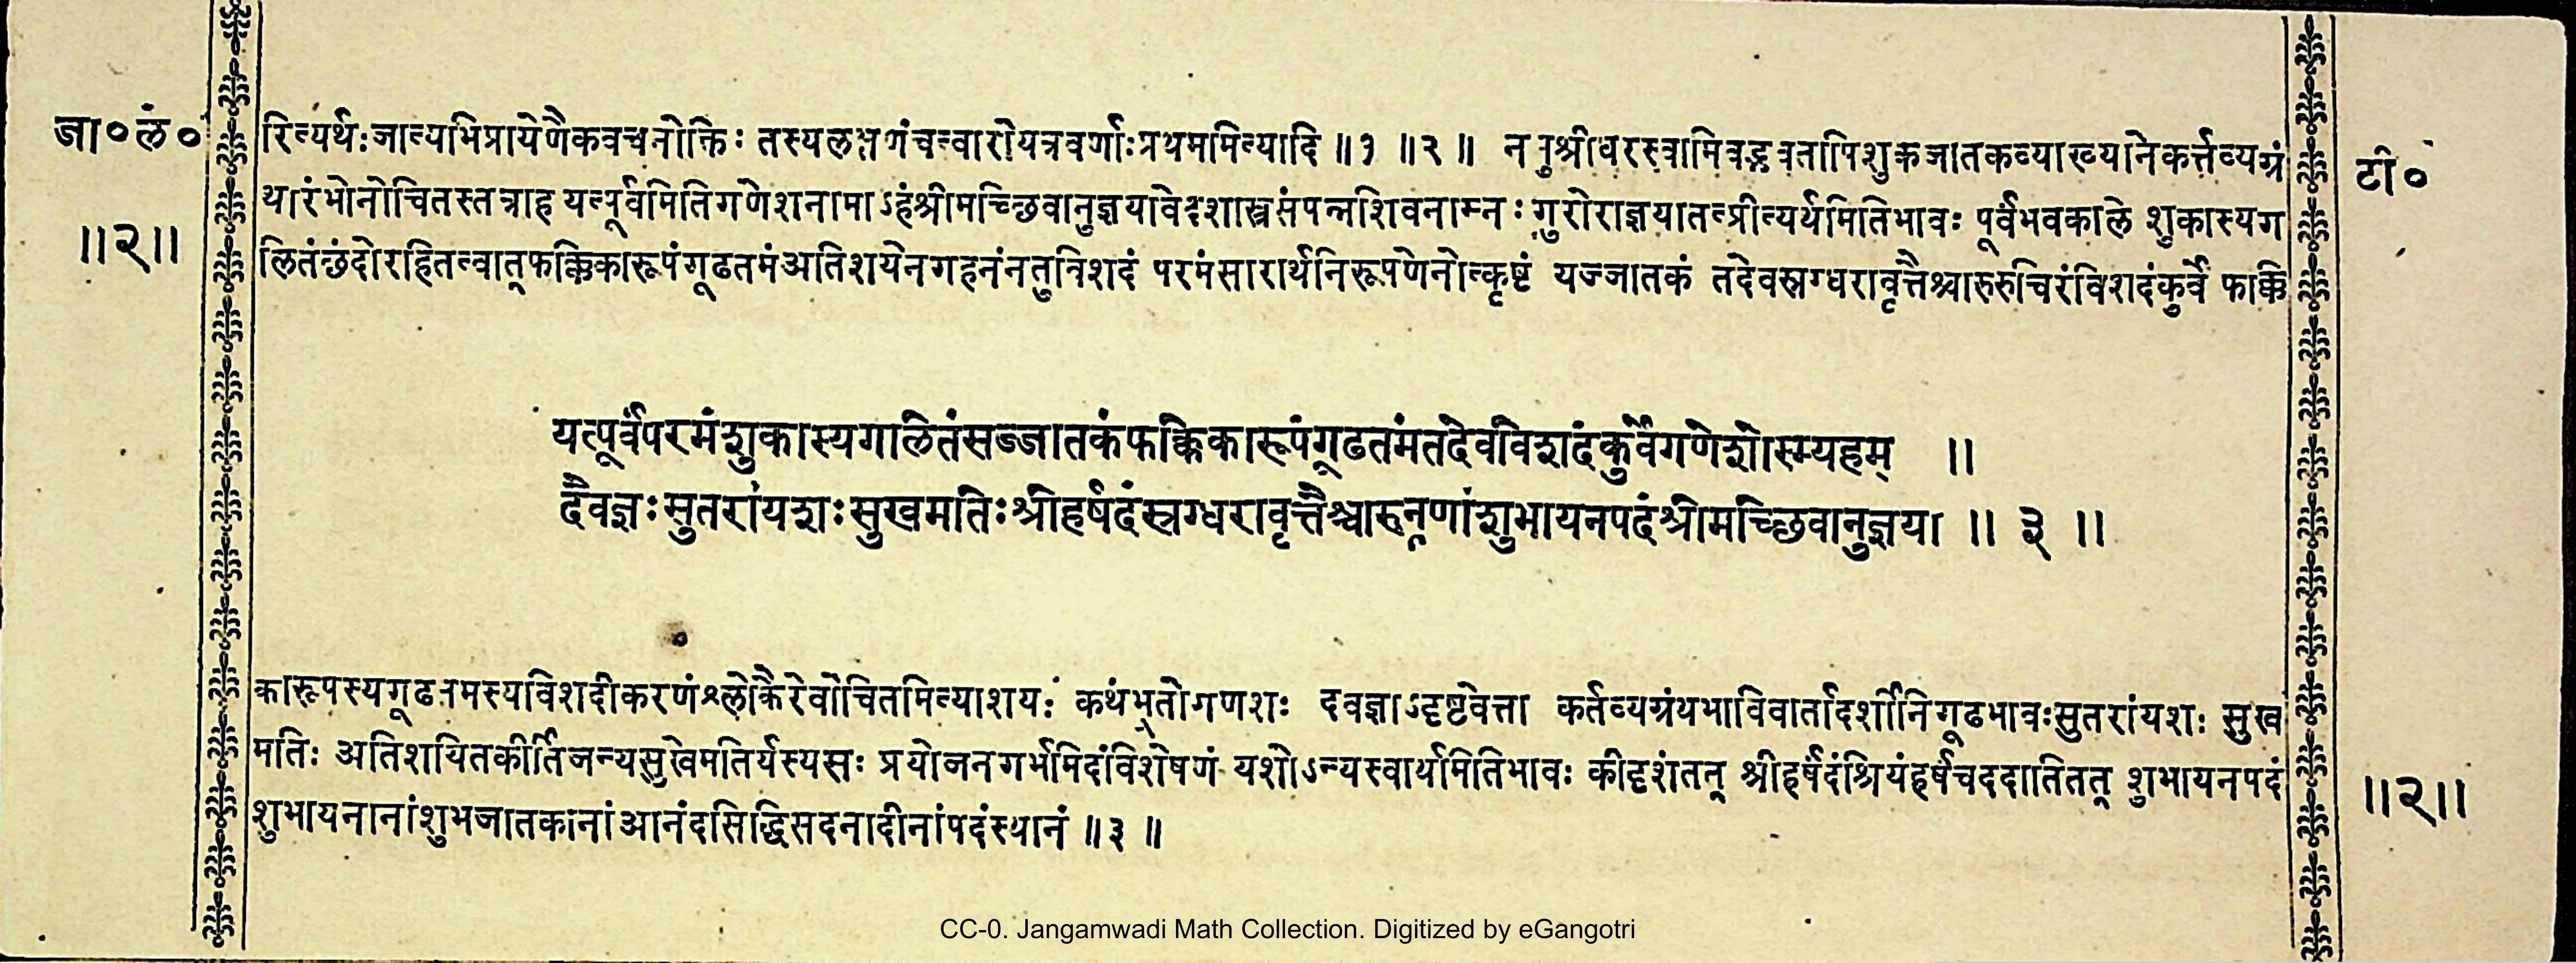 जा०लं०
॥२॥
रित्यर्थः जात्यभिप्रायेणैकवचनोक्तिः तस्यलक्षणंचत्वारोयत्रवर्णाःप्रथममित्यादि ॥१ ॥२॥ ननुश्रीधरस्वामिवद्भवतापिशुकजातकव्याख्यानेकर्त्तव्यग्रं
थारंभोनोचितस्तत्राह यत्पूर्वमितिगणेशनामाऽहंश्रीमच्छिवानुज्ञयावेदशास्त्रसंपन्नशिवनाम्नः गुरोराज्ञयातत्प्रीत्यर्थमितिभावः पूर्वंभवकाले शुकास्यग
लितंछंदोरहितत्वात्फक्किकारूपंगूढतमंअतिशयेनगहनंनतुविशदं परमंसारार्थनिरूपणेनोत्कृष्टं यज्जातकं तदेवस्रग्धरावृत्तैश्चारुरुचिरंविशदंकुर्वे फक्कि
यत्पूर्वंपरमंशुकास्यगलितंसज्जातकंफक्किकारूपंगूढतमंतदेवविशदंकुर्वेगणेशोस्म्यहम् ॥
दैवज्ञःसुतरांयशःसुखमतिःश्रीहर्षदंस्रग्धरावृत्तैश्चारुनृणांशुभायनपदंश्रीमच्छिवानुज्ञया ॥ ३ ॥
कारूपस्यगूढतमस्यविशदीकरणंश्लोकैरेवोचितमित्याशयः कथंभूतोगणेशः दैवज्ञोऽदृष्टवेत्ता कर्तव्यग्रंथभाविवार्तादर्शीनिगूढभावःसुतरांयशः सुख
मतिः अतिशयितकीर्तिजन्यसुखेमतिर्यस्यसः प्रयोजनगर्भमिदंविशेषणं यशोऽन्यस्वार्थमितिभावः कीदृशंतत् श्रीहर्षदंश्रियंहर्षंचददातितत् शुभायनपदं
शुभायनानांशुभजातकानांआनंदसिद्धिसदनादीनांपदंस्थानं ॥३ ॥
टी०
॥२॥
CC-0. Jangamwadi Math Collection. Digitized by eGangotri